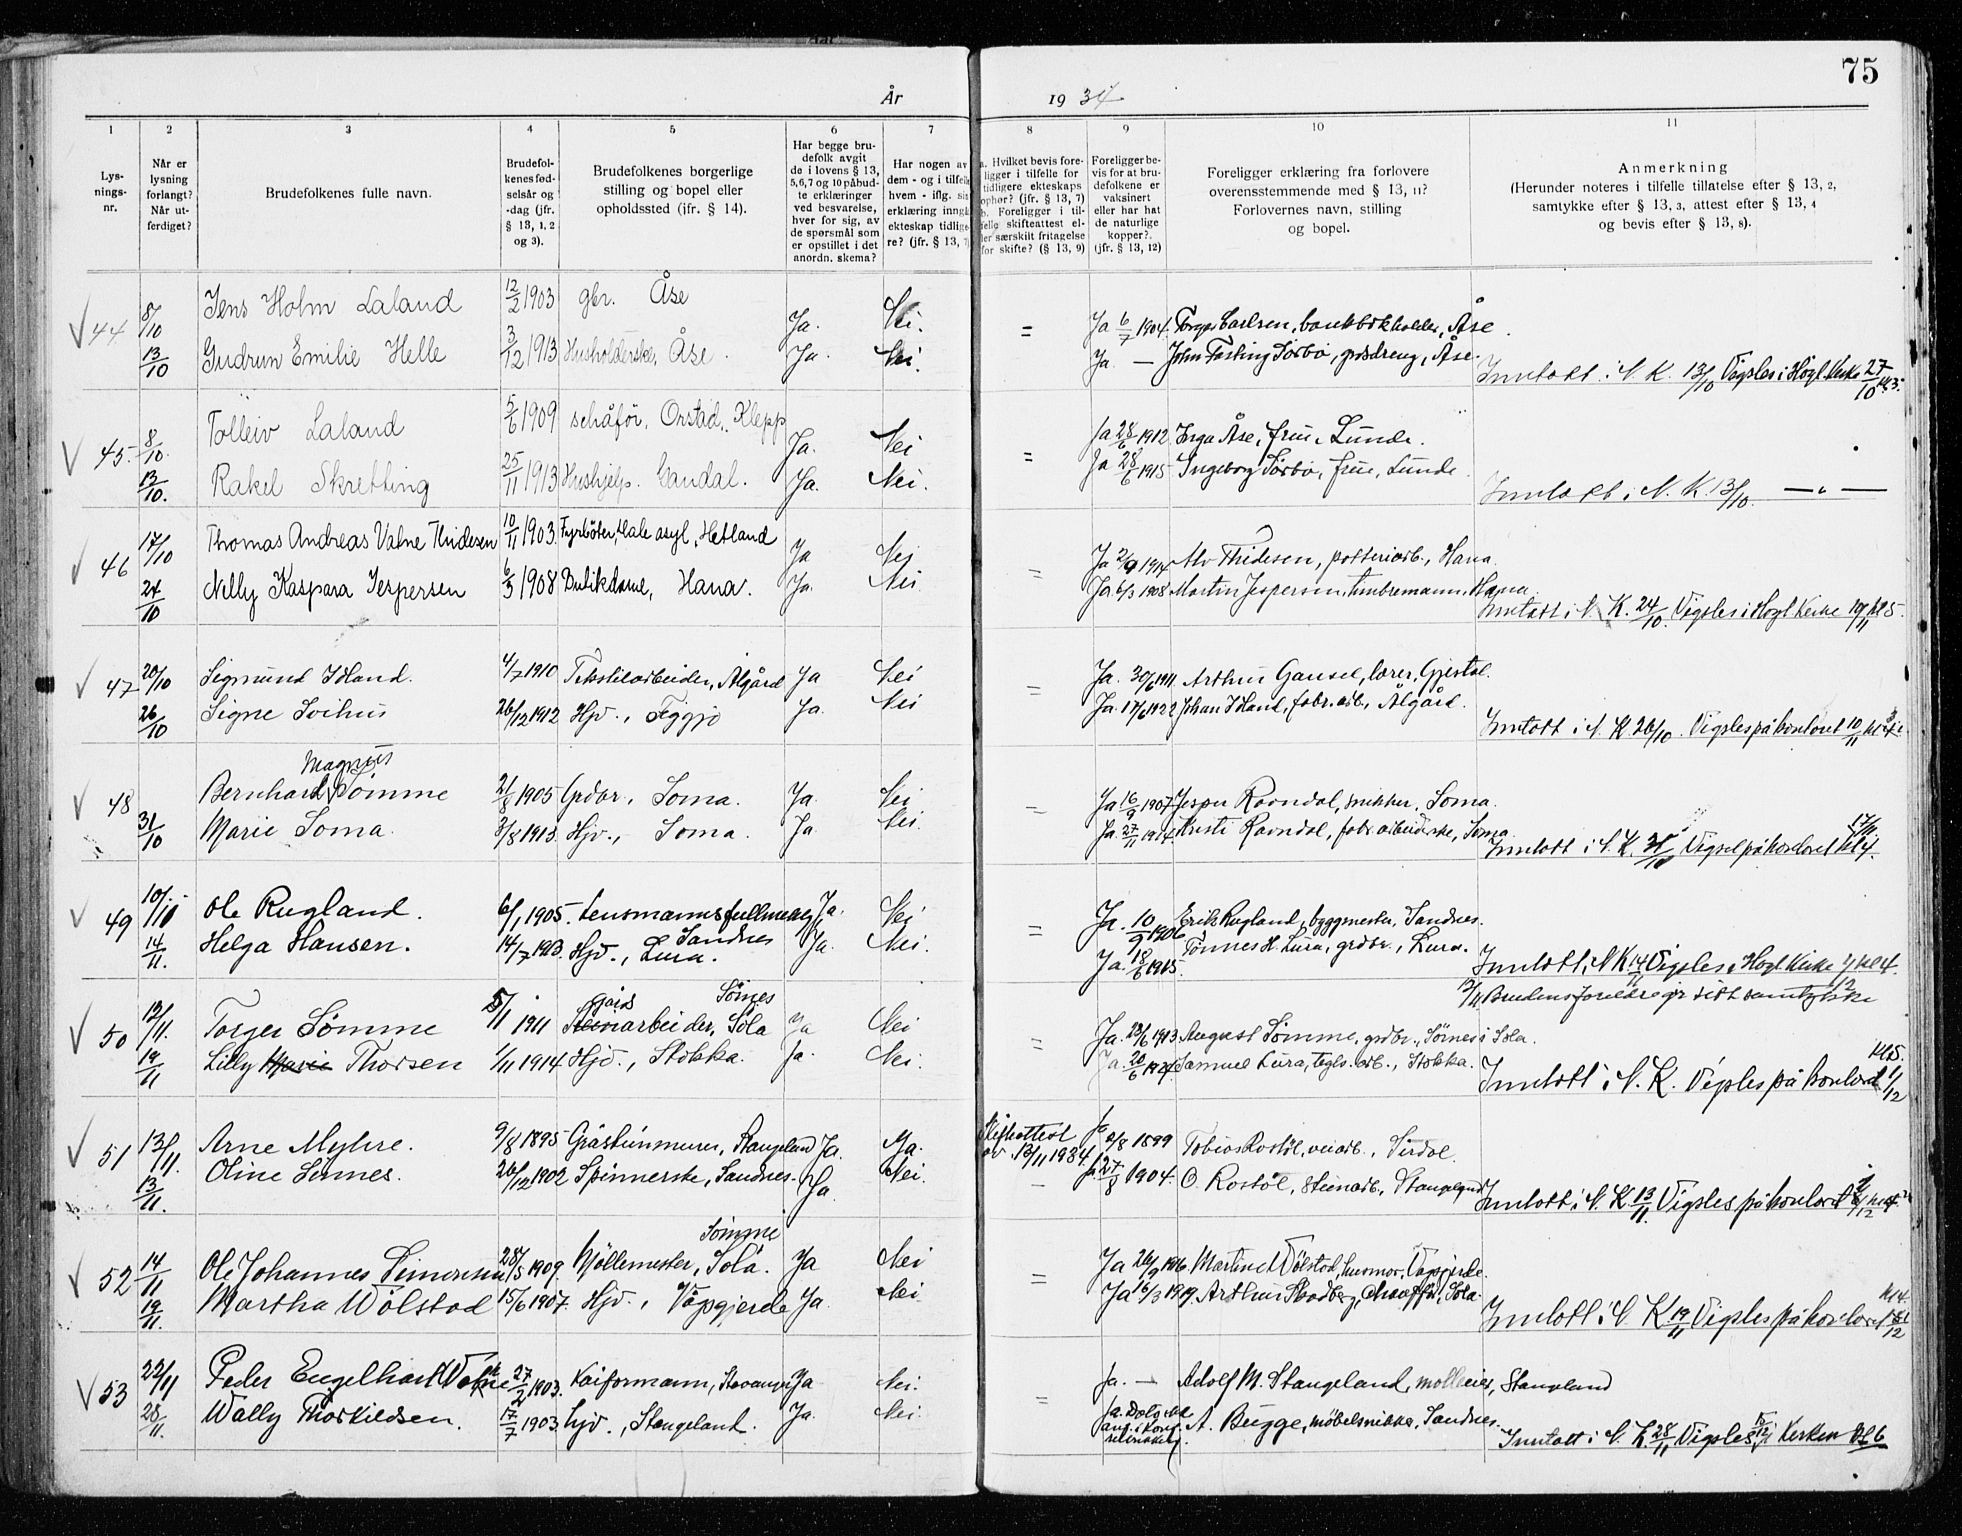 75
År 1934
1 2 3 4 5 6 7 8 9 10 11
Lys-
nings-
nr.
Når er
lysning
forlangt?
Når ut-
ferdiget?
Brudefolkenes fulle navn.
Brudefol-
kenes fød-
selsår og
-dag (jfr.
§ 13, 1, 2
og 3).
Brudefolkenes borgerlige
stilling og bopel eller
opholdssted (jfr. § 14).
Har begge bru-
defolk avgit
de i lovens § 13,
5,6,7 og 10 påbud-
te erklæringer
ved besvarelse,
hver for sig, av
de spørsmål som
er opstillet i det
anordn. skema?
Har nogen av
dem - og i tilfelle
hvem - iflg. sin
erklæring inngå
ekteskap tidlige-
re? (jfr. § 13, 7)
a. Hvilket bevis fore-
ligger i tilfelle for
tidligere ekteskaps
ophør? (jfr. § 13, 7)
b. Foreligger i til-
felle skifteattest el-
ler særskilt fritagelse
for skifte? (§ 13, 9)
Foreligger be-
vis for at bru-
defolkene er
vaksinert
eller har hat
de naturlige
kopper?.
(jfr. § 13, 12)
Foreligger erklæring fra forlovere
overensstemmende med § 13, 11?
Forlovernes navn, stilling
og bopel.
Anmerkning
(Herunder noteres i tilfelle tillatelse efter § 13, 2,
samtykke efter § 13, 3, attest efter § 13, 4
og bevis efter § 13, 8).
44 8/10 Jens Holm Laland 12/2 1903 gbr. Åse Ja. Nei. = Ja 6/7 1904. Torger Carlsen, bankbokholder, Åse.
13/10 Gudrun Emilie Helle 3/12 1913 Husholderske, Åse. Ja. Nei. Ja. — John Fasting Sørbø, Åse.
Inntatt i N. K. 13/10 Vigsles i Høgl. Kirke 27/10 kl 3.
45. 8/10. Tolleiv Laland 5/6 1909 schåfør, Orstad, Klepp Ja. Nei = Ja 28/6 1912 Inga Åse, frue, Lunde.
13/10. Rakel Skretting 25/11 1913 Hushjelp. Gandal. Ja. Nei. Ja 28/6 1915 Ingeborg Sørbø, frue, Lunde.
Inntatt i N. K. 13/10. — " —
46 17/10 Thomas Andreas Vatne Thidesen 10/11 1903. Fyrbøter, Hale asyl, Hetland Ja Nei = Ja 2/9 1914 Alv Thidesen, potteriarb., Hana.
24/10 Nelly Kaspara Jespersen 6/3 1908 Butikdame, Hana. Ja. Nei Ja. 6/3 1908 Martin Jespersen, tømbremann, Hana.
Inntatt i N. K. 24/10. Vigsles i Høgl Kirke 10/11 kl 5.
47 20/10 Sigmund Idland. 4/7 1910 Tekstilarbeider, Ålgård Ja Nei = Ja. 30/6 1911 Arthur Gausel, lærer, Gjestal.
26/10 Signe Svihus 26/12 1912 Hjv., Figgjo Ja. Nei Ja. 17/6 1922 Johan Idland, fabr. arb., Ålgård.
Inntatt i N. K. 26/10. Vigsles på kontoret 10/11
48 Bernhard Magnus Sømme 21/8 1905 Grdbr., Soma. Ja. Nei = Ja 16/9 1907 Jesper Ravndal, snikker, Soma.
31/10 Marie Soma. 3/8 1913. Hjv., Soma. Ja Nei. Ja. 27/11 1914. Kristi Ravndal, fabr. arbeiderske, Soma.
Inntatt i N. K. 31/10 Vigsel på kontoret 17/11 kl 4.
49 10/11 Ole Rugland. 6/1 1905. Lensmannsfullmektig, Sandnes Ja. Nei = Ja. 10/9 1906 Erik Rugland, byggmester, Sandnes.
14/11. Helga Hansen. 14/7 1913. Hjv., Lura. Ja. Nei. Ja. 18/6 1915. Tønnes H. Lura, grdbr., Lura.
Inntatt i N K 14/11 Vigsles i Høgl Kirke 1/12 kl 4.
Brudens foreldre gir sitt samtykke
50 12/11. Torger Sømme 5/11 1911 Gårdsarbeider, Sømes Sola Ja Nei = Ja. 23/6 1913 August Sømme, grdbr., Sømes i Sola.
19/11 Lilly Marie Thorsen 1/11 1914 Hjv., Stokka. Ja. Nei. Ja. 20/6 1924. Samuel Lura, tegls. arb., Stokka.
Inntatt i N. K. Vigsles på kontoret 1/12 kl 5.
51 13/11. Arne Myhre. 9/8 1895 Gråsteinmurer, Stangeland Ja. Ja. Skifteattest av 13/11 1934 Ja 2/8 1899 Tobias Rostøl, veiarb., Sirdal.
13/11. Oline Sinnes. 26/12 1902 Spinnerske, Sandnes. Ja. Nei. — Ja. 27/8 1904. O. Rostøl, steinarb., Stangeland
Inntatt i N. K. 13/11. Vigsles på kontoret
52 14/11 Ole Johannes Simonsen 28/5 1909. Møllemester, Sømme Sola. Ja Nei = Ja 26/9 1916 Martine Wølstad, husmor, Vagjerde.
19/11. Martha Wølstad 15/6 1907. Hjv., Vagjerde Ja. Nei Ja 16/3 1919. Arthur Skadberg, chauffør, Sola.
Inntatt i N. K 19/11 Vigsles på kontoret kl 4.
53 22/11 Peder Engelhart Vatne 27/2 1903. Kaiformann, Stavanger Ja Nei. = Ja. — Adolf M. Stangeland, mølleeier, Stangeland
28/11. Wally Thorkildsen. 17/7 1903 hjv., Stangeland. Ja. Nei. Ja. A. Bugge, møbelsnikker, Sandnes.
Inntatt i N. K. 28/11 Vigsles i Kirken kl 6